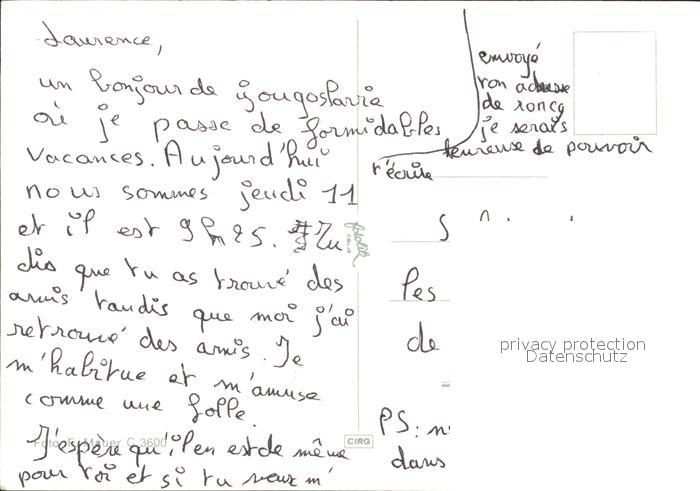 Laurence,
un bonjour de Yougoslavie
où je passe de formidables
vacances. Aujourd'hui
nous sommes jeudi 11
et il est 9h25. Tu
dis que tu as trouvé des
amis tandis que moi j'ai
retrouvé des amis. Je
m'habitue et m'amuse
comme une folle.
J'espère qu'il en est de même
pour toi et si tu veux m'
envoyé
ton adresse
de ronçq
je serais
heureuse de pouvoir
t'écrire
S
les
de
PS: n'
dans
privacy protection
Datenschutz
CIRG